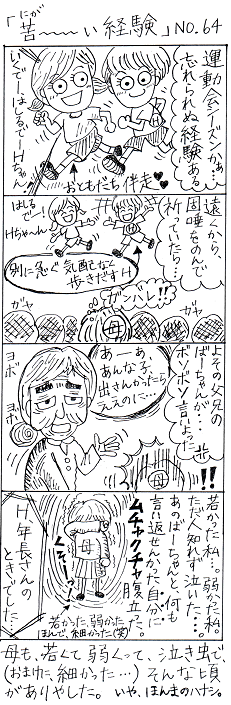 「苦〜〜〜い経験」NO.64
にが
運動会シーズンかぁ…
忘れられぬ経験ある
いくでーはしるでーHちゃん
おともだち伴走♥♥
遠くから、
固唾をのんで
祈っていたら…
はしるでー!
Hちゃ〜ん
別に急ぐ気配なく
歩きだすH
ガンバレ!!
ガヤ
ガヤ
母
よその父兄の
ばーちゃんが…
ボソボソ言いよった
あーあ、
あんな子、
出さんかったら
ええのに…
ヨボ
ヨボ
!!
母
若かった私…。弱かった私。
ただ人知れず泣いた…。
あのばーちゃんと、何も
言い返せんかった自分に
ムチャクチャ腹立った。
くそーっ
母
若かった、弱かった
ほんで、細かった(笑)
H年長さんの
ときでした
母も、若くて弱くって、泣き虫で、
(おまけに、細かった…)そんな頃
がありやした。いや、ほんまのハナシ。